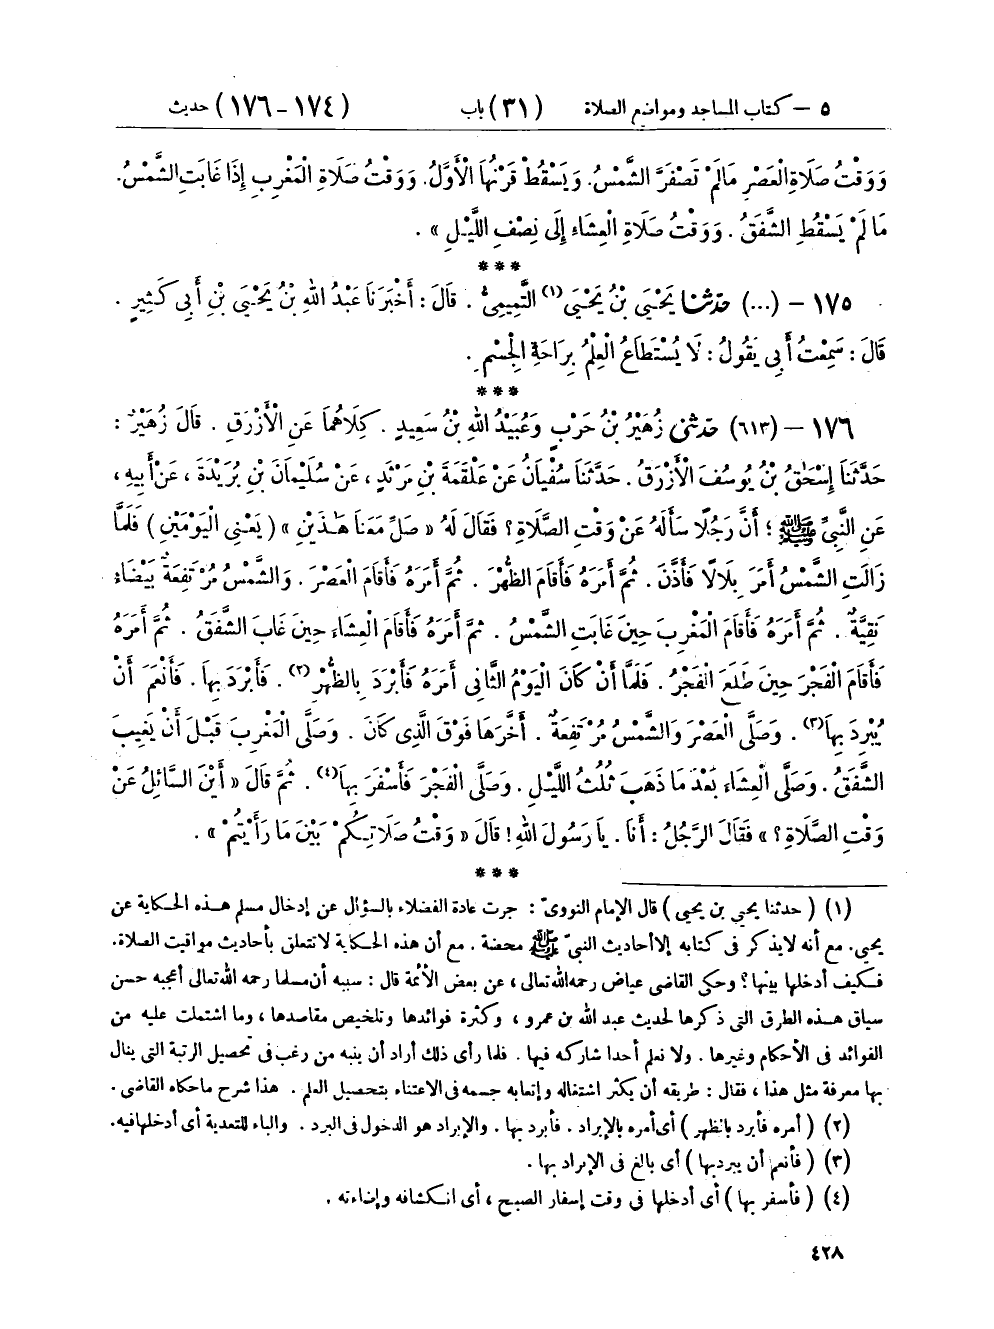 ٥ – كتاب المساجد ومواضع الصلاة (٣١) باب (١٧٤-١٧٦) حديث
وَوَقْتُ صَلَاةِ الْعَصْرِ مَا لَمْ تَصْفَرَّ الشَّمْسُ. وَيَسْقُطْ قَرْنُهَا الْأَوَّلُ. وَوَقْتُ صَلَاةِ الْمَغْرِبِ إِذَا غَابَتِ الشَّمْسُ.
مَا لَمْ يَسْقُطِ الشَّفَقُ. وَوَقْتُ صَلَاةِ الْعِشَاءِ إِلَى نِصْفِ اللَّيْلِ» .
***
١٧٥ – (...) حَدَّثَنَا يَحْيَى بْنُ يَحْيَى (١) التَّمِيمِيُّ . قَالَ : أَخْبَرَنَا عَبْدُ اللهِ بْنُ يَحْيَى بْنِ أَبِي كَثِيرٍ .
قَالَ : سَمِعْتُ أَبِي يَقُولُ : لَا يُسْتَطَاعُ الْعِلْمُ بِرَاحَةِ الْجِسْمِ .
***
١٧٦ – (٦١٣) حَدَّثَنِي زُهَيْرُ بْنُ حَرْبٍ وَعُبَيْدُ اللهِ بْنُ سَعِيدٍ . كِلَاهُمَا عَنِ الْأَزْرَقِ . قَالَ زُهَيْرٌ :
حَدَّثَنَا إِسْحَاقُ بْنُ يُوسُفَ الْأَزْرَقُ . حَدَّثَنَا سُفْيَانُ عَنْ عَلْقَمَةَ بْنِ مَرْثَدٍ ، عَنْ سُلَيْمَانَ بْنِ بُرَيْدَةَ ، عَنْ أَبِيهِ ،
عَنِ النَّبِيِّ ﷺ ؛ أَنَّ رَجُلًا سَأَلَهُ عَنْ وَقْتِ الصَّلَاةِ؟ فَقَالَ لَهُ «صَلِّ مَعَنَا هَذَيْنِ» (يَعْنِي الْيَوْمَيْنِ) فَلَمَّا
زَالَتِ الشَّمْسُ أَمَرَ بِلَالًا فَأَذَّنَ . ثُمَّ أَمَرَهُ فَأَقَامَ الظُّهْرَ . ثُمَّ أَمَرَهُ فَأَقَامَ الْعَصْرَ . وَالشَّمْسُ مُرْتَفِعَةٌ بَيْضَاءُ
نَقِيَّةٌ . ثُمَّ أَمَرَهُ فَأَقَامَ الْمَغْرِبَ حِينَ غَابَتِ الشَّمْسُ . ثُمَّ أَمَرَهُ فَأَقَامَ الْعِشَاءَ حِينَ غَابَ الشَّفَقُ . ثُمَّ أَمَرَهُ
فَأَقَامَ الْفَجْرَ حِينَ طَلَعَ الْفَجْرُ . فَلَمَّا أَنْ كَانَ الْيَوْمُ الثَّانِي أَمَرَهُ فَأَبْرَدَ بِالظُّهْرِ (٢) . فَأَبْرَدَ بِهَا . فَأَنْعَمَ أَنْ
يُبْرِدَ بِهَا (٣) . وَصَلَّى الْعَصْرَ وَالشَّمْسُ مُرْتَفِعَةٌ . أَخَّرَهَا فَوْقَ الَّذِي كَانَ . وَصَلَّى الْمَغْرِبَ قَبْلَ أَنْ يَغِيبَ
الشَّفَقُ . وَصَلَّى الْعِشَاءَ بَعْدَ مَا ذَهَبَ ثُلُثُ اللَّيْلِ . وَصَلَّى الْفَجْرَ فَأَسْفَرَ بِهَا (٤) . ثُمَّ قَالَ «أَيْنَ السَّائِلُ عَنْ
وَقْتِ الصَّلَاةِ؟» فَقَالَ الرَّجُلُ : أَنَا . يَا رَسُولَ اللهِ ! قَالَ «وَقْتُ صَلَاتِكُمْ بَيْنَ مَا رَأَيْتُمْ» .
***
(١) (حدثنا يحيى بن يحيى) قال الإمام النووىّ : جرت عادة الفضلاء بالسؤال عن إدخال مسلم هذه الحكاية عن
يحيى. مع أنه لا يذكر فى كتابه إلا أحاديث النبىّ ﷺ محضة . مع أن هذه الحكاية لا تتعلق بأحاديث مواقيت الصلاة.
فكيف أدخلها بينها؟ وحكى القاضى عياض رحمه الله تعالى ، عن بعض الأئمة قال : سببه أن مسلما رحمه الله تعالى أعجبه حسن
سياق هذه الطرق التى ذكرها لحديث عبد الله بن عمرو ، وكثرة فوائدها وتلخيص مقاصدها ، وما اشتملت عليه من
الفوائد فى الأحكام وغيرها . ولا نعلم أحدا شاركه فيها . فلما رأى ذلك أراد أن ينبه من رغب فى تحصيل الرتبة التى ينال
بها معرفة مثل هذا ، فقال : طريقه أن يكثر اشتغاله وإتعابه جسمه فى الاعتناء بتحصيل العلم . هذا شرح ما حكاه القاضى .
(٢) (أمره فأبرد بالظهر) أى أمره بالإبراد . فأبرد بها . والإبراد هو الدخول فى البرد . والباء للتعدية أى أدخلها فيه.
(٣) (فأنعم أن يبرد بها) أى بالغ فى الإبراد بها .
(٤) (فأسفر بها) أى أدخلها فى وقت إسفار الصبح ، أى انكشافه وإضاءته .
٤٢٨